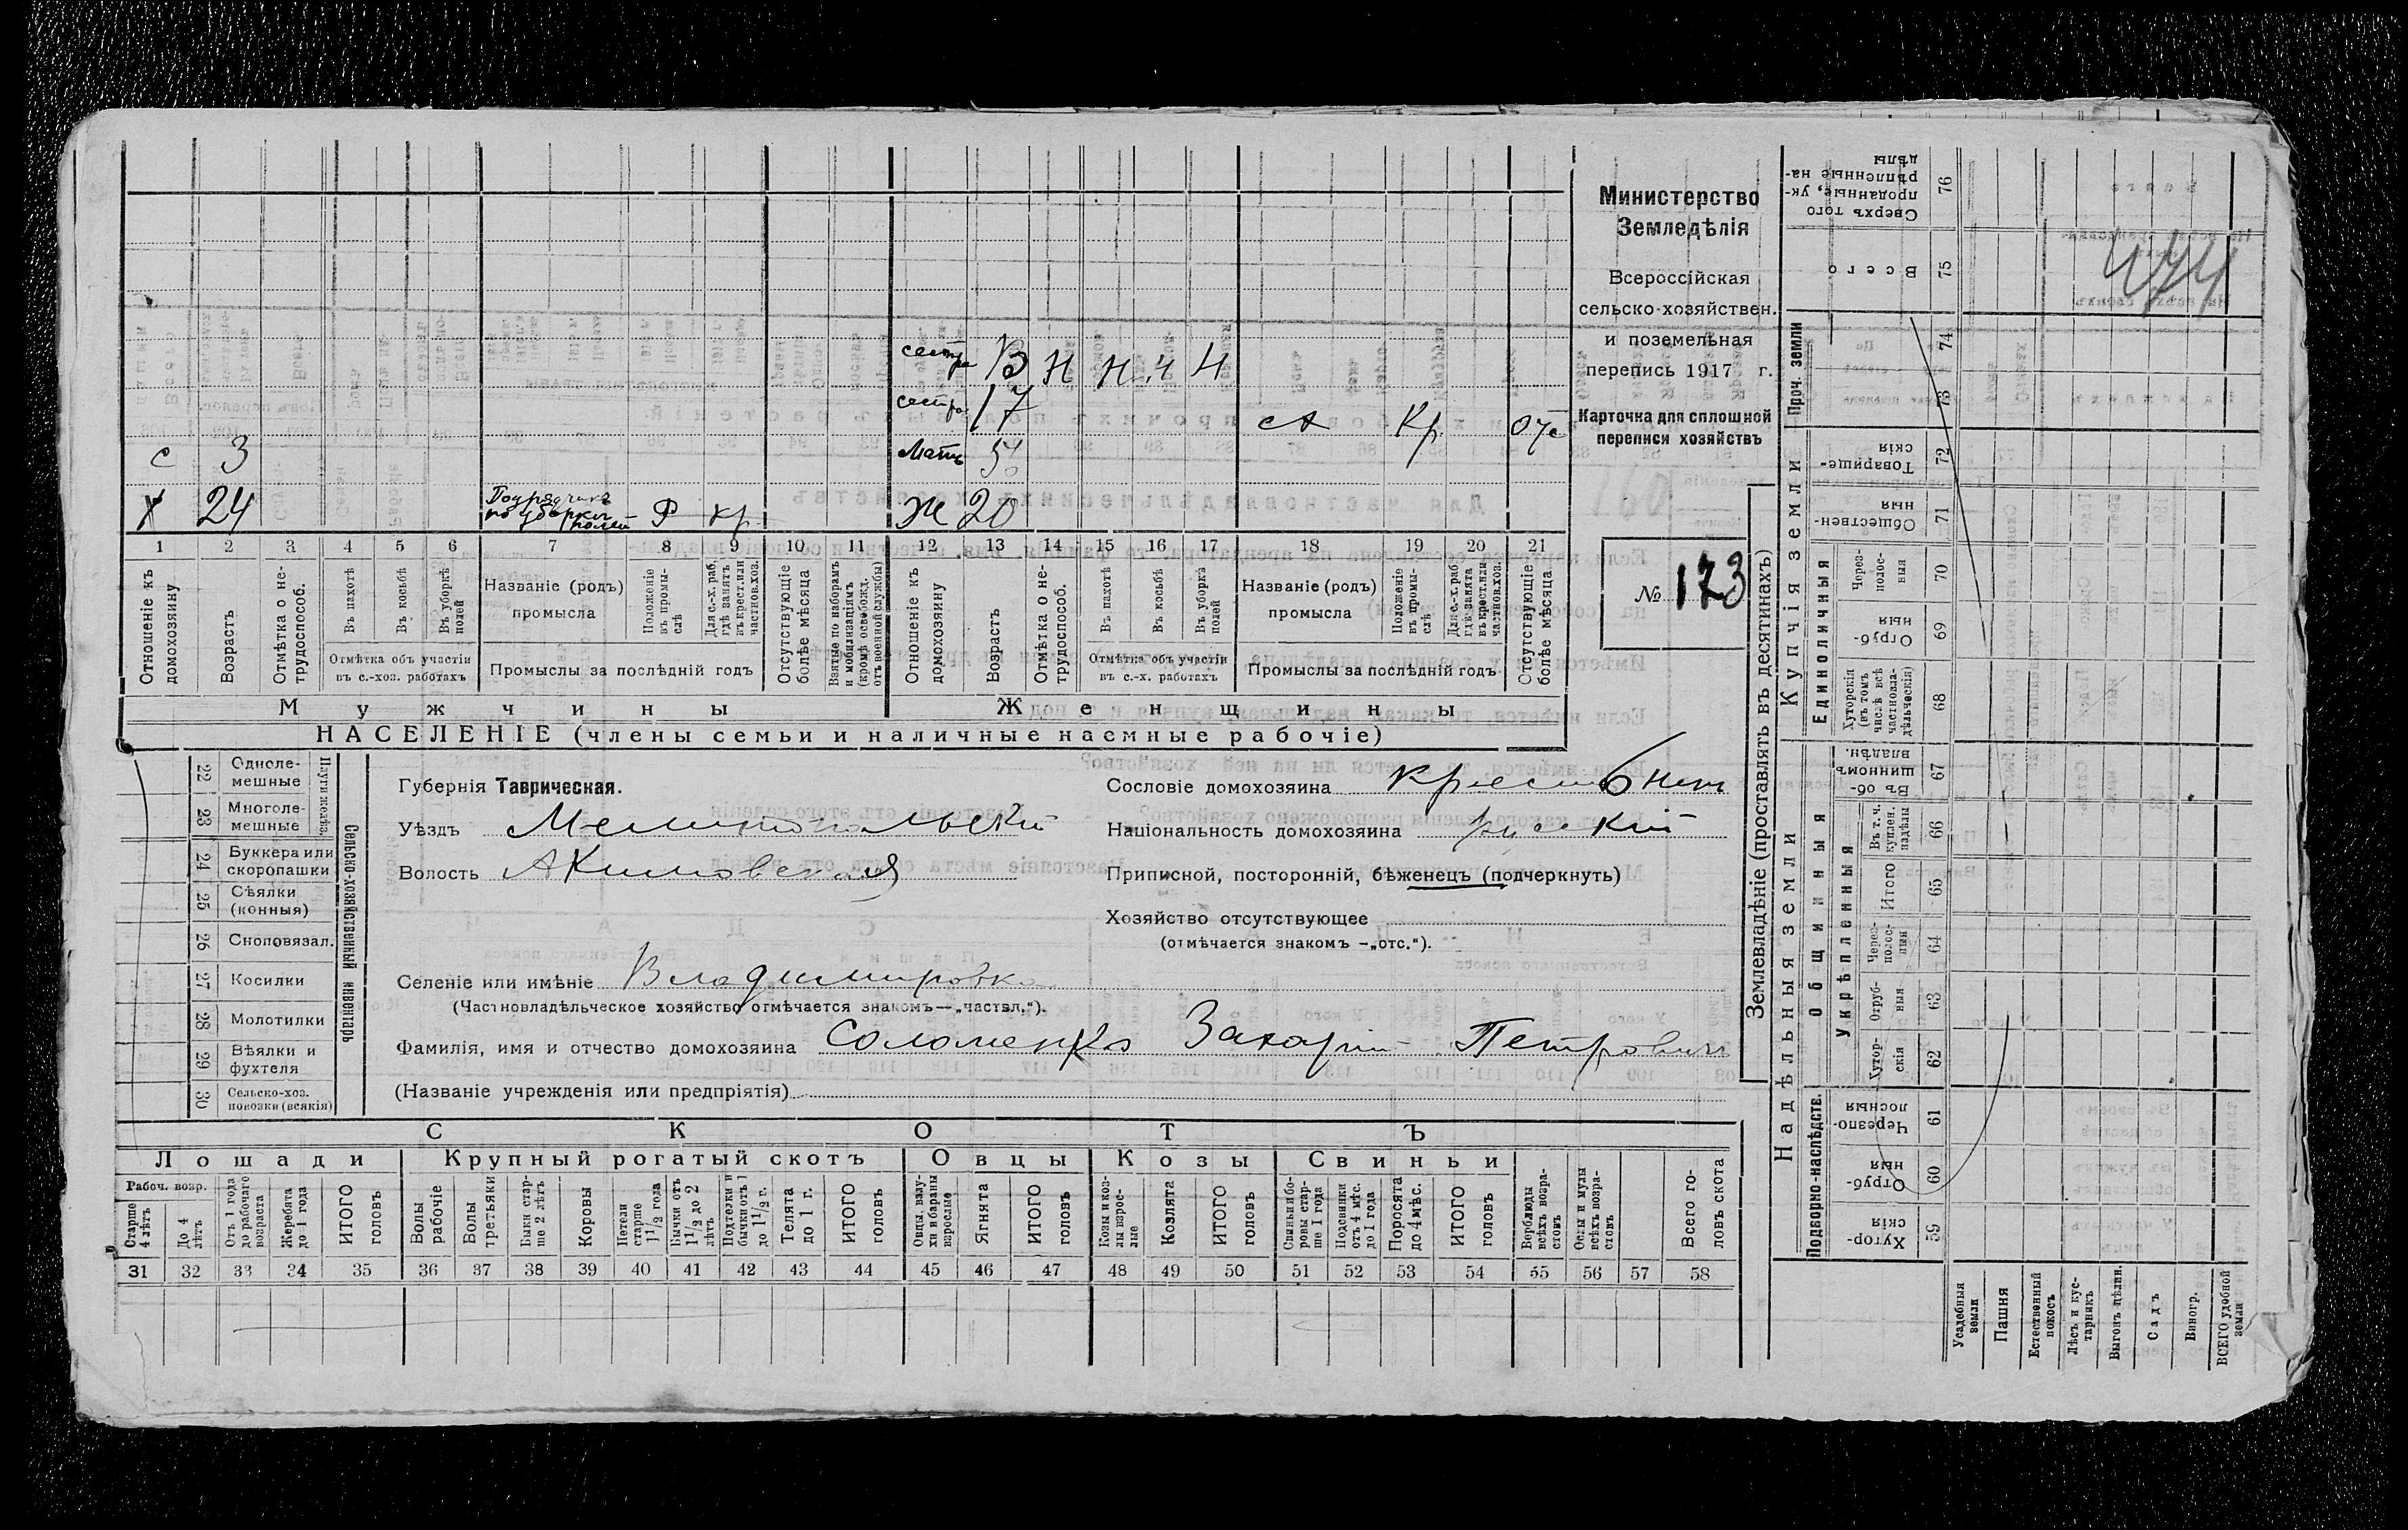 Министерство
Земледѣлія
Всероссійская
сельско-хозяйствен.
и поземельная
перепись 1917 г.
Карточка для сплошной
переписи хозяйствъ
№ 173
сестра 13 Н Н Н Н
сестра 17
с 3 Мать 50 Кр.
Х 24 Подрядчикъ по уборкѣ полей Р кр. Ж 20
1 2 3 4 5 6 7 8 9 10 11 12 13 14 15 16 17 18 19 20 21
Отношеніе къ домохозяину
Возрастъ
Отмѣтка о не-трудоспособ.
Въ пахотѣ
Въ косьбѣ
Въ уборкѣ полей
Отмѣтка объ участіи въ с.-хоз. работахъ
Названіе (родъ) промысла
Положеніе въ промы-слѣ
Для с.-х. раб. гдѣ занятъ въ крест. или частнов. хоз.
Промыслы за послѣдній годъ
Отсутствующіе болѣе мѣсяца
Взятые по наборамъ и мобилизаціямъ (кромѣ освобожд. отъ военной службы)
Отношеніе къ домохозяину
Возрастъ
Отмѣтка о не-трудоспособ.
Въ пахотѣ
Въ косьбѣ
Въ уборкѣ полей
Отмѣтка объ участіи въ с.-х. работахъ
Названіе (родъ) промысла
Положеніе въ промы-слѣ
Для с.-х. раб. гдѣ занята въ крест. или частнов. хоз.
Промыслы за послѣдній годъ
Отсутствующіе болѣе мѣсяца
Мужчины Женщины
НАСЕЛЕНІЕ (члены семьи и наличные наемные рабочіе)
22 Одноле-мешные
23 Многоле-мешные
Плуги желѣз.
24 Буккера или скоропашки
25 Сѣялки (конныя)
26 Сноповязал.
27 Косилки
28 Молотилки
29 Вѣялки и фухтеля
30 Сельско-хоз. повозки (всякія)
Сельско-хозяйственный инвентарь
Губернія Таврическая.
Уѣздъ Мелитопольскій
Волость Акимовская
Сословіе домохозяина
Національность домохозяина русскій
Приписной, посторонній, бѣженецъ (подчеркнуть)
Хозяйство отсутствующее
(отмѣчается знакомъ -„отс.“).
Селеніе или имѣніе Владимировка
(Частновладѣльческое хозяйство отмѣчается знакомъ—„частвл.“).
Фамилія, имя и отчество домохозяина Соломенко Захарій Петровичъ
(Названіе учрежденія или предпріятія)
СКОТЪ
Лошади Крупный рогатый скотъ Овцы Козы Свиньи
Рабоч. возр.
Старше 4 лѣтъ
До 4 лѣтъ
Отъ 1 года до рабочаго возраста
Жеребята до 1 года
ИТОГО головъ
Волы рабочіе
Волы третьяки
Быки стар-ше 2 лѣтъ
Коровы
Нетели старше 1 1/2 года
Бычки отъ 1 1/2 до 2 лѣтъ
Подтелки и бычки отъ 1 до 1 1/2 г.
Телята до 1 г.
ИТОГО головъ
Овцы, валу-хи и бараны взрослые
Ягнята
ИТОГО головъ
Козы и коз-лы взрос-лые
Козлята
ИТОГО головъ
Свиньи и бо-ровы стар-ше 1 года
Подсвинки отъ 4 мѣс. до 1 года
Поросята до 4 мѣс.
ИТОГО головъ
Верблюды всѣхъ возра-стовъ
Ослы и мулы всѣхъ возра-стовъ
Всего го-ловъ скота
31 32 33 34 35 36 37 38 39 40 41 42 43 44 45 46 47 48 49 50 51 52 53 54 55 56 57 58
Землевладѣніе (проставлять въ десятинахъ)
Надѣльныя земли Купчія земли Проч. земли
Подворно-наслѣдств.
Общинныя
Укрѣпленныя
Единоличныя
Хутор-скія 59
Отруб-ныя 60
Черезпо-лосныя 61
Хутор-скія 62
Отруб-ныя 63
Через-полос-ныя 64
Итого 65
Въ т. ч. куплен. надѣлы 66
Въ об-щинномъ владѣн. 67
Хуторскія (въ томъ числѣ всѣ частновла-дѣльческія) 68
Отруб-ныя 69
Через-полос-ныя 70
Обществен-ныя 71
Товарище-скія 72
73
74
Всего 75
Сверхъ того проданные, ук-рѣпленные на-дѣлы 76
Усадебныя земли
Пашня
Естественный покосъ
Лѣсъ и кус-тарникъ
Выгонъ цѣлин.
Садъ
Виногр.
ВСЕГО удобной земли